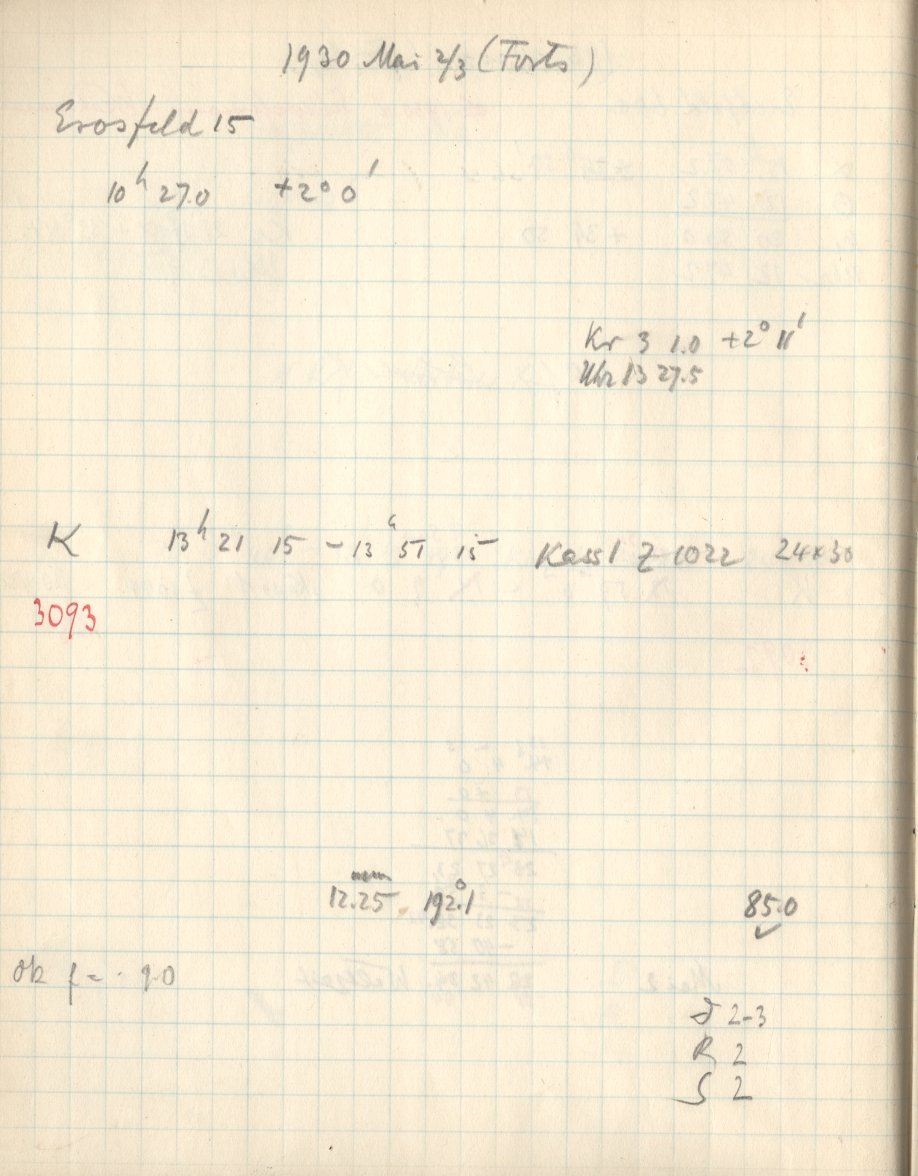 1930 Mai 2/3 (Forts)
Erosfeld 15
10h 27.0 +2° 0'
Kr 3 1.0 +2° 11'
Uhr 13 27.5
K 13h 21 15 - 13h 51 15 Kassl Z 1022 24x30
3093
12.25 192.°1 85.0
Ok f = 9.0
2-3
R 2
S 2